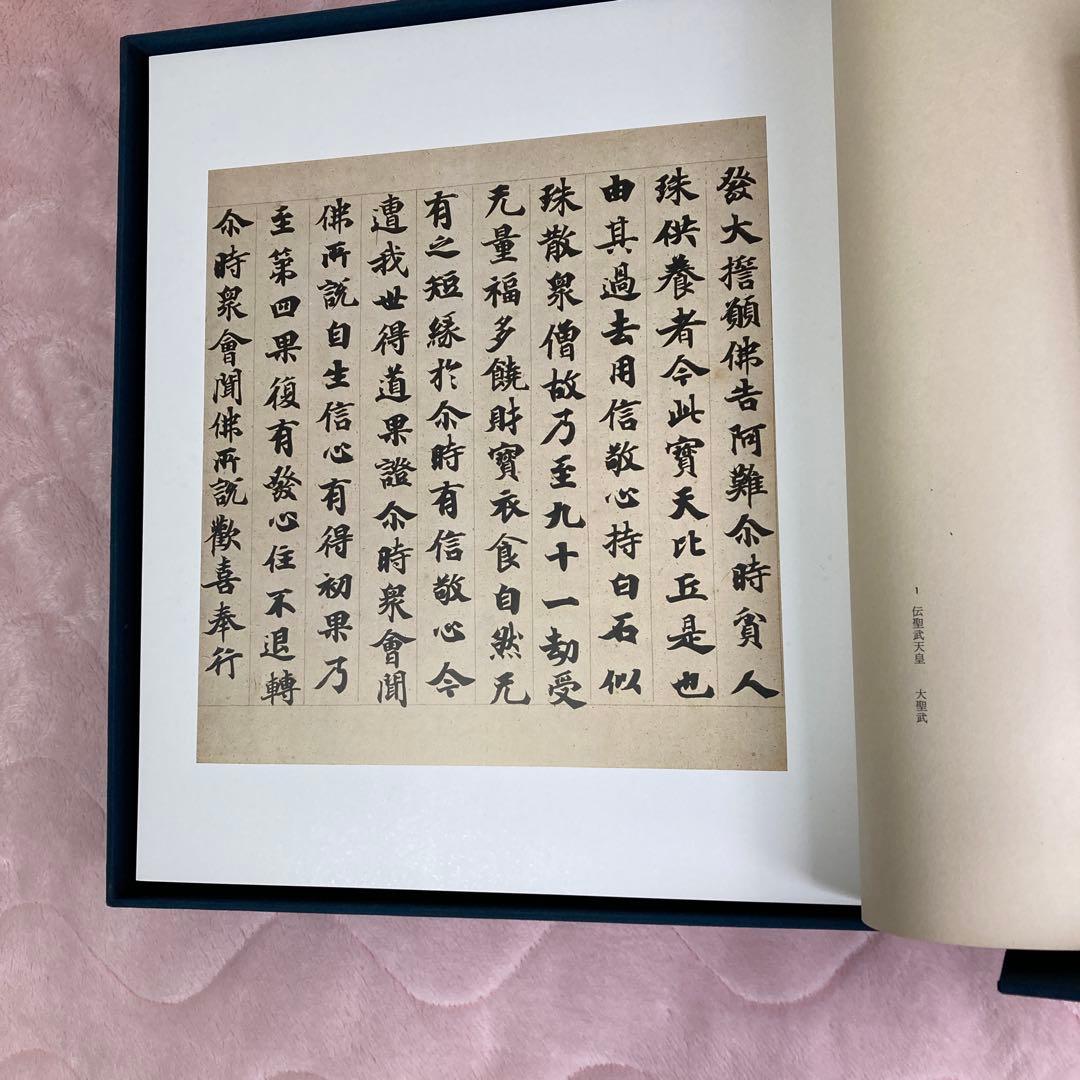 發大擔願佛告阿難尒時貧人
珠供養者今此寶天比丘是也
由其過去用信敬心持白石似
珠散眾僧故乃至九十一劫受
无量福多饒財寶衣食自然无
有之短緣於尒時有信敬心今
遭我世得道果證尒時眾會聞
佛所説自生信心有得初果乃
至第四果復有發心住不退轉
尒時眾會聞佛所説歡喜奉行
1 伝聖武天皇 大聖武